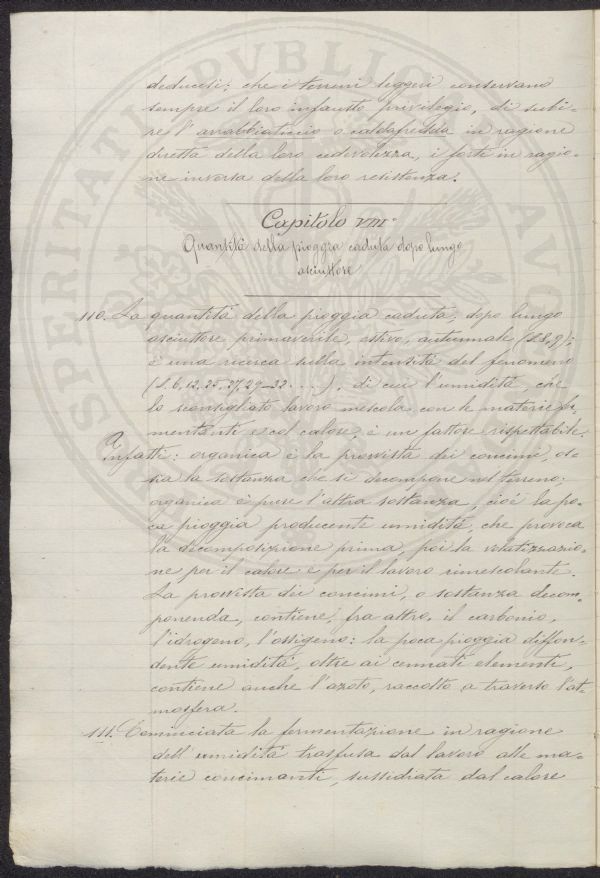 deduceti: che i terreni leggeri conservano
sempre il loro infausto privilegio, di subi-
re l'arrabbiaticcio o caldafredda in ragione
diretta della loro cedevolezza, i forti in ragio-
ne inversa della loro resistenza.
Capitolo VIII°
Quantità della pioggia caduta dopo lungo
asciuttore
110. La quantità della pioggia caduta, dopo lungo
asciuttore primaverile, estivo, autunnale (§. 8, 9);
è una ricerca sulla intensità del fenomeno
(§. 6, 12, 25, 27, 29_32....), di cui l'umidità, che
lo sconsigliato lavoro mescola con le materie fer-
mentanti e col calore, è un fattore rispettabile.
Infatti: organica è la provvista dei concimi, os-
sia la sostanza che si decompone nel terreno:
organica è pure l'altra sostanza, cioè la po-
ca pioggia producente umidità, che provoca
la decomposizione prima, poi la volatizzazio-
ne per il calore e per il lavoro rimescolante.
La provvista dei concimi, o sostanza decom-
ponenda, contiene, fra altro, il carbonio,
l'idrogeno, l'ossigeno: la poca pioggia diffon-
dente umidità, oltre ai cennati elementi,
contiene anche l'azoto, raccolto a traverso l'at-
mosfera.
111. Cominciata la fermentazione in ragione
dell'umidità trasfusa dal lavoro alle ma-
terie concimanti, sussidiata dal calore